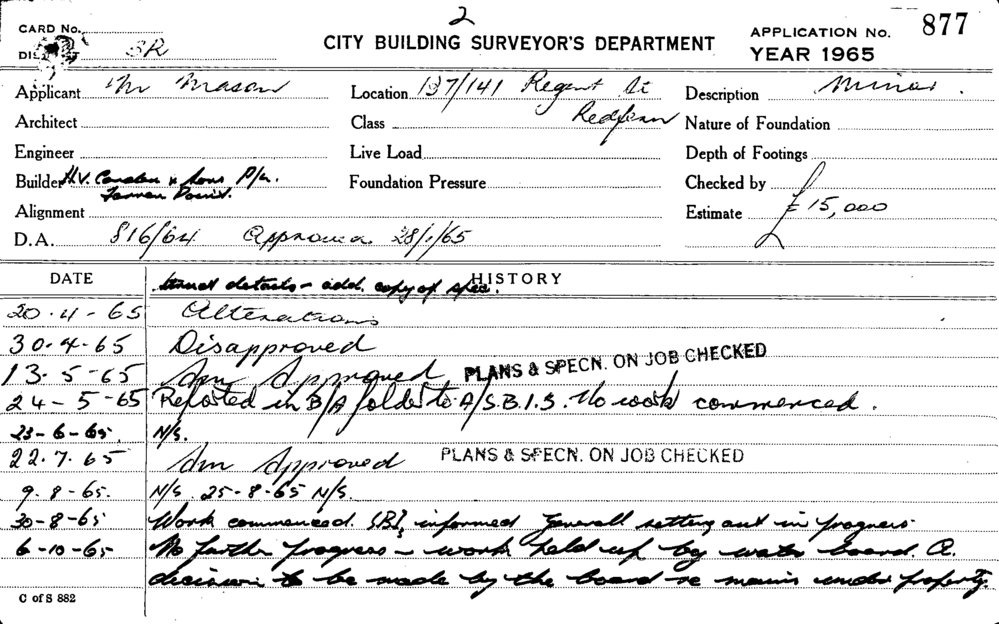 2
CARD No. CITY BUILDING SURVEYOR'S DEPARTMENT APPLICATION No. 877
SR YEAR 1965
Applicant Mr Mason Location 137/141 Regent St Description Minor.
Architect Class Redfern Nature of Foundation
Engineer Live Load Depth of Footings
Builder H.V. & Sons P/L. Foundation Pressure Checked by
Alignment Estimate £15,000
D.A. 816/64 Approved 28/1/65
DATE HISTORY
details - add. copy of spec.
20.4-65 Alterations
30.4-65 Disapproved
13.5-65 Am Approved PLANS & SPECN. ON JOB CHECKED
24-5-65 Reported in B/A folder to A/S.B.I.S. No work commenced.
23-6-65. N/S.
22.7.65 Am Approved PLANS & SPECN. ON JOB CHECKED
9.8-65. N/S. 25-8-65 N/S.
30-8-65 Work commenced. informed generall setting out in progress.
6-10-65 No further progress - work held up by water board. A.
decision to be made by the board re mains under property.
C of S 882